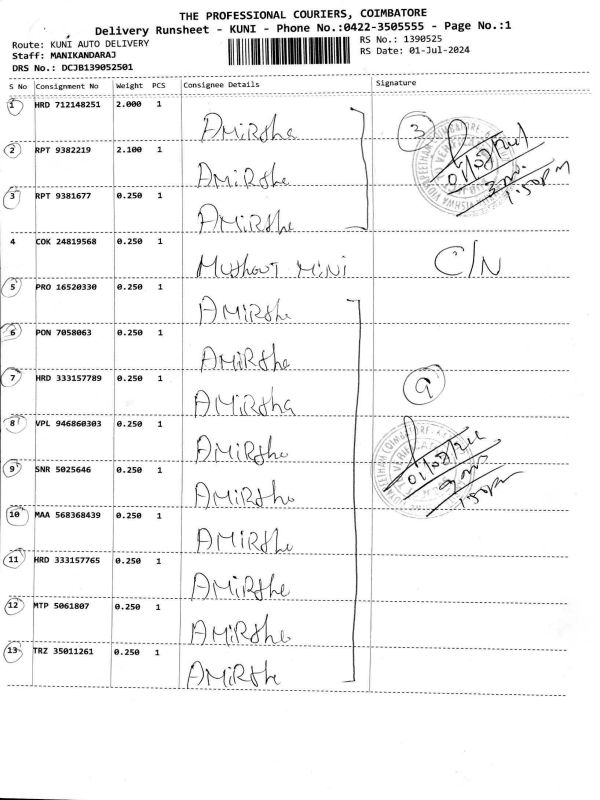 THE PROFESSIONAL COURIERS, COIMBATORE
Delivery Runsheet - KUNI - Phone No.:0422-3505555 - Page No.:1
Route: KUNI AUTO DELIVERY
Staff: MANIKANDARAJ
DRS No.: DCJB139052501
RS No.: 1390525
RS Date: 01-Jul-2024
S No Consignment No Weight PCS Consignee Details Signature
1 HRD 712148251 2.000 1 AMiRthe
3
2 RPT 9382219 2.100 1 AMiRthe
3 RPT 9381677 0.250 1 AMiRthe
1:50pm
4 COK 24819568 0.250 1 MUthooT MiNi C/N
5 PRO 16520330 0.250 1 AMiRthe
6 PON 7058063 0.250 1 AMiRthe
7 HRD 333157789 0.250 1 AMiRtha
9
8 VPL 946860303 0.250 1 AMiRthe
9 SNR 5025646 0.250 1 AMiRthe
1:50pm
10 MAA 568368439 0.250 1 AMiRthe
11 HRD 333157765 0.250 1 AMiRthe
12 MTP 5061807 0.250 1 AMiRthe
13 TRZ 35011261 0.250 1 AMiRthe